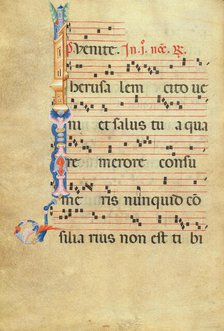 Venite. In j. noc. ℟.
Iherusalem cito ve
ni et salus tua qua
re merore consu
meris nunquid co
siliarius non est tibi